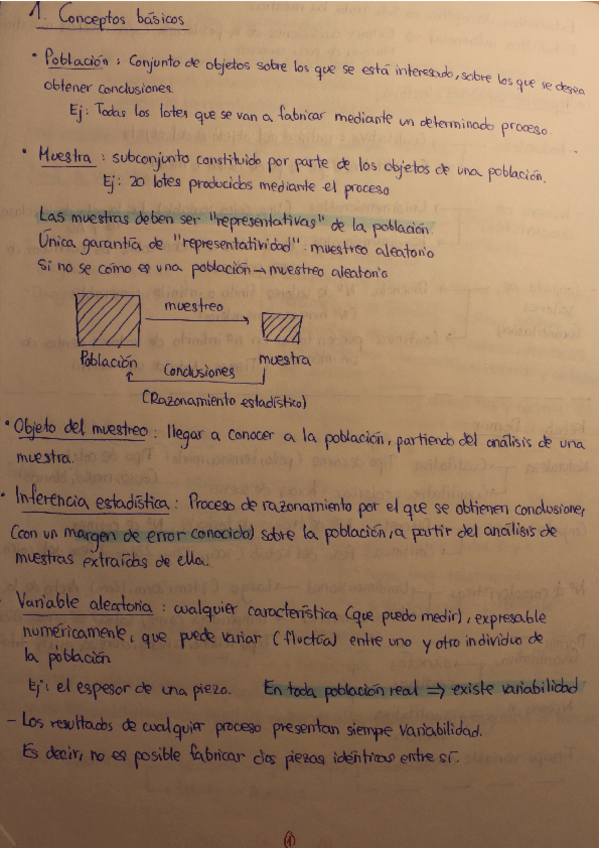 1. Conceptos básicos
• Población : Conjunto de objetos sobre los que se está interesado, sobre los que se desea
obtener conclusiones.
Ej: Todas los lotes que se van a fabricar mediante un determinado proceso.
• Muestra : subconjunto constituido por parte de los objetos de una población.
Ej: 20 lotes producidos mediante el proceso
Las muestras deben ser "representativas" de la población
Única garantía de "representatividad" : muestreo aleatorio
Si no se cómo es una población → muestreo aleatorio
muestreo
Población
muestra
Conclusiones
(Razonamiento estadístico)
• Objeto del muestreo : llegar a conocer a la población, partiendo del análisis de una
muestra.
• Inferencia estadística : Proceso de razonamiento por el que se obtienen conclusiones
(con un margen de error conocido) sobre la población, a partir del análisis de
muestras extraídas de ella.
· Variable aleatoria : cualquier característica (que puedo medir), expresable
numéricamente, que puede variar (fluctúa) entre uno y otro individuo de
la población
Ej: el espesor de una pieza. En toda población real ⇒ existe variabilidad
- Los resultados de cualquier proceso presentan siempre variabilidad.
Es decir, no es posible fabricar dos piezas idénticas entre sí.
1